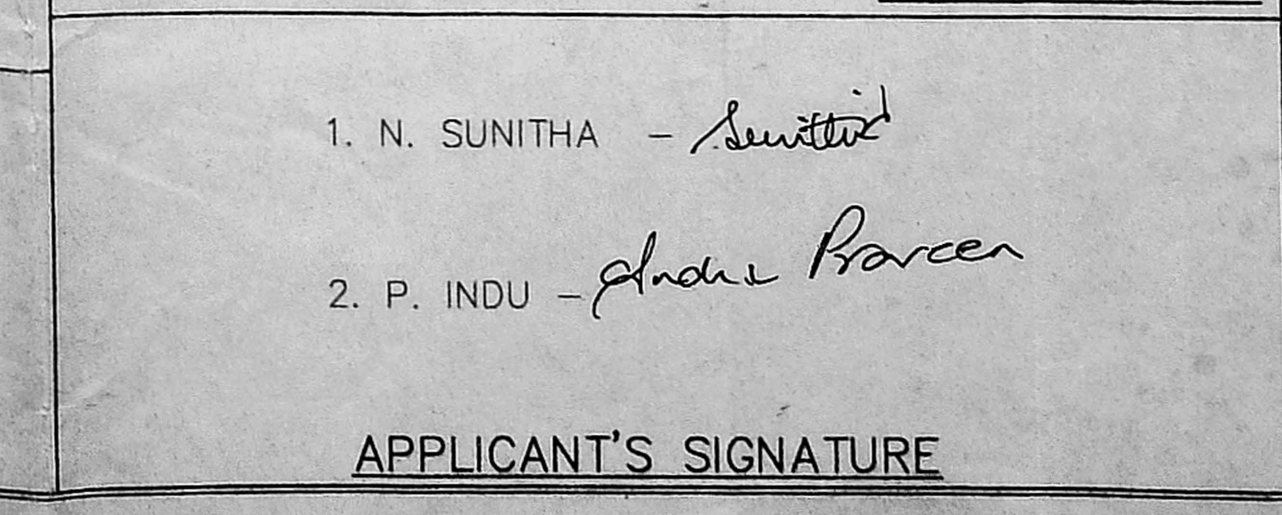 1. N. SUNITHA - Sunitha
2. P. INDU - Indu Praveen
APPLICANT'S SIGNATURE